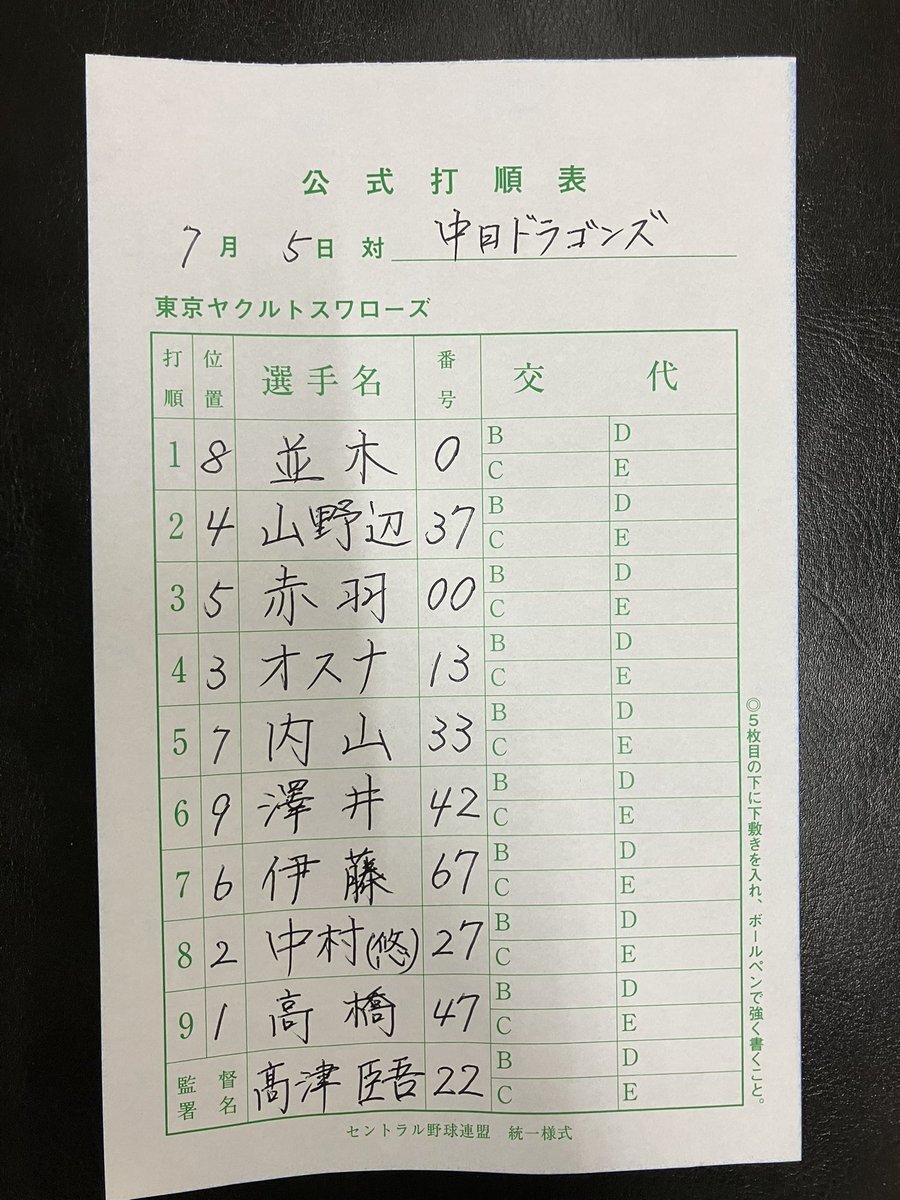 公式打順表
7月 5日 対 中日ドラゴンズ
東京ヤクルトスワローズ
打順 位置 選手名 番号 交代
1 8 並木 0 B D
C E
2 4 山野辺 37 B D
C E
3 5 赤羽 00 B D
C E
4 3 オスナ 13 B D
C E
5 7 内山 33 B D
C E
6 9 澤井 42 B D
C E
7 6 伊藤 67 B D
C E
8 2 中村(悠) 27 B D
C E
9 1 高橋 47 B D
C E
監督署名 髙津臣吾 22 B D
C E
セントラル野球連盟 統一様式
◎5枚目の下に下敷きを入れ、ボールペンで強く書くこと。